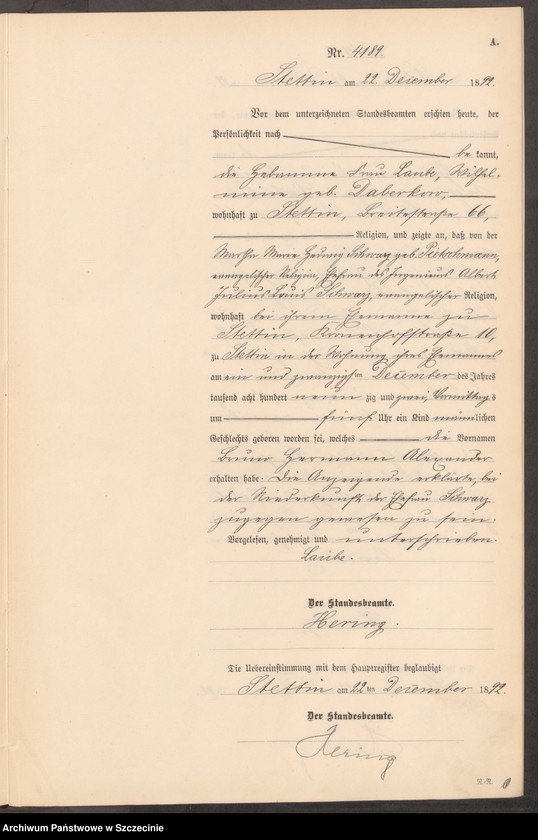 A.
Nr. 4189.
Stettin am 22. December 1892.
Vor dem unterzeichneten Standesbeamten erschien heute, der
Persönlichkeit nach
be kannt,
die Hebamme Frau Laube, Wilhel-
mine geb. Daberkow,
wohnhaft zu Stettin, Breitestraße 66,
Religion, und zeigte an, daß von der
Martha Marie Hedwig Schwarz geb.
evangelischer Religion, Ehefrau des Ingenieurs Albert
Julius Louis Schwarz, evangelischer Religion,
wohnhaft bei ihrem Ehemanne zu
Stettin, Kronenhofstraße 10,
zu Stettin in der Wohnung ihres Ehemannes
am ein und zwanzigsten December des Jahres
tausend acht hundert neun zig und zwei, Vormittags
um fünf Uhr ein Kind männlichen
Geschlechts geboren worden sei, welches die Vornamen
Bruno Hermann Alexander
erhalten habe. Die Anzeigende erklärte, bei
der Niederkunft der Ehefrau Schwarz
zugegen gewesen zu sein.
Vorgelesen, genehmigt und unterschrieben.
Laube.
Der Standesbeamte.
Hering.
Die Uebereinstimmung mit dem Hauptregister beglaubigt
Stettin am 22ten December 1892.
Der Standesbeamte.
Hering
Archiwum Państwowe w Szczecinie